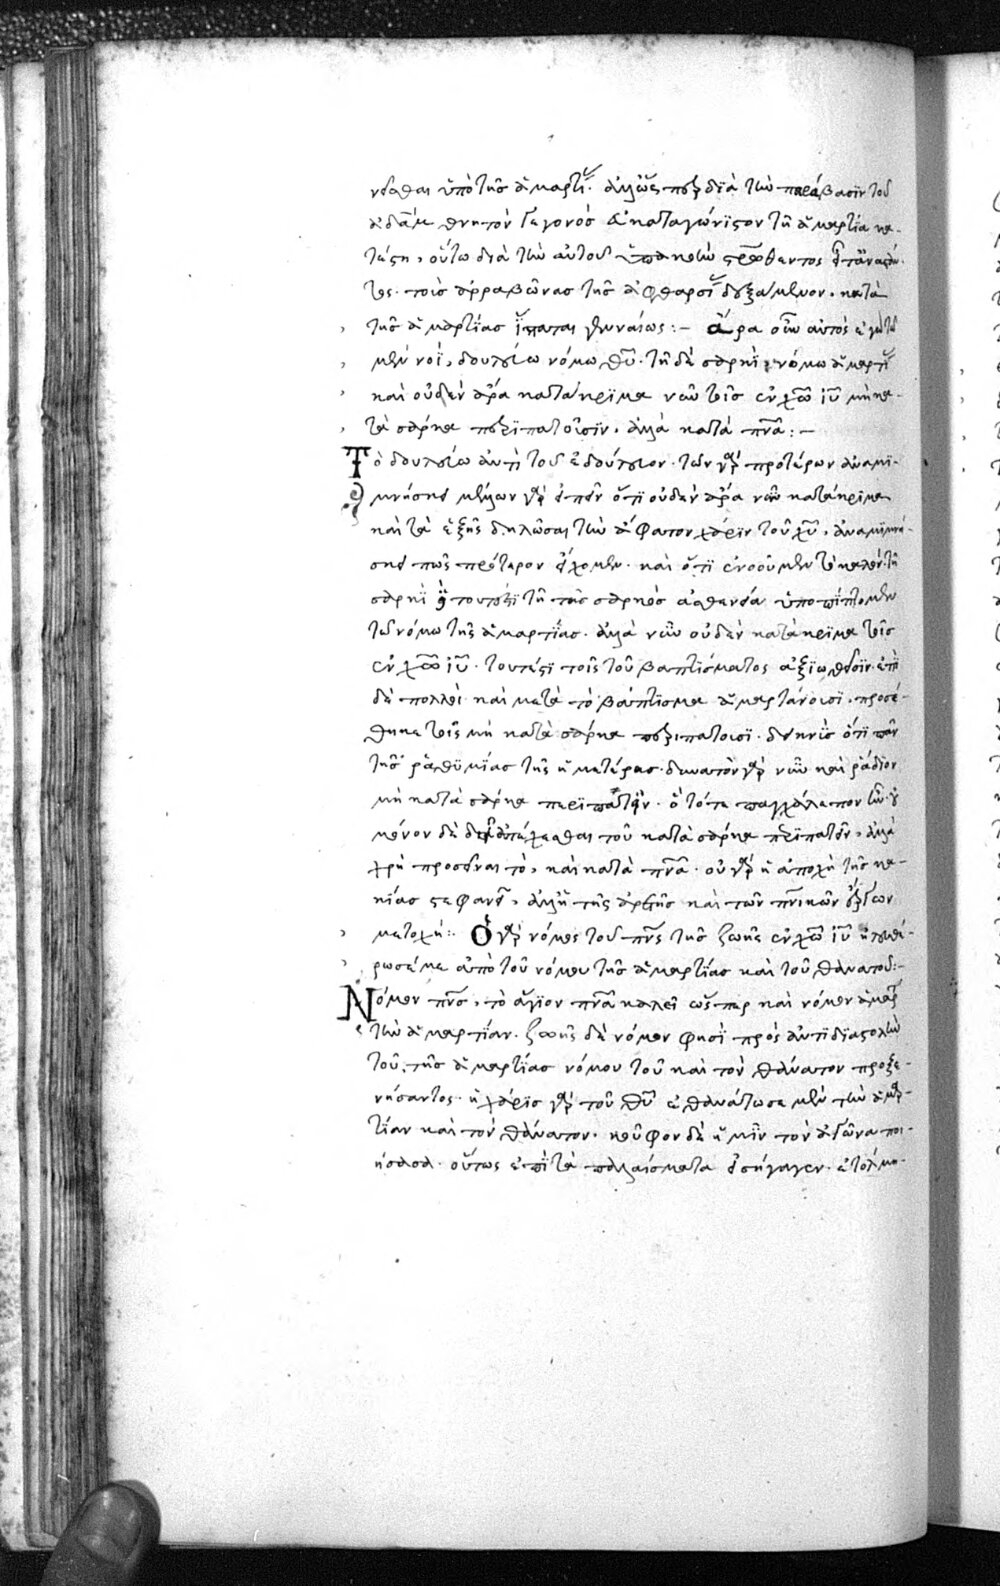 νεσθαι ὑπὸ τῆς ἁμαρτί ἀλλ ὥσπερ διὰ τὴν παράβασιν τοῦ
ἀδὰμ θνητὸν γεγονὸς εὐκαταγώνιστον τῆ ἁμαρτία κα-
τέστη, οὕτω διὰ τὴν αὐτοῦ ὑπακοὴν
τες τοὺς ἀρραβῶνας τῆς ἀφθαρσί δεξάμενον. κατὰ
τῆς ἁμαρτίας ἵσταται γενναίως:- Ἄρα οὖν αὐτὸς ἐγὼ τῶ
μὲν νοῒ, δουλεύω νόμω θῦ. τῆ δὲ σαρκὶ νόμω ἁμαρτί
καὶ οὐδὲν ἄρα κατάκριμα νῦν τοῖς ἐν χῶ ἰῦ μὴ κα-
τὰ σάρκα περιπατοῦσιν, ἀλλὰ κατὰ πνᾶ:-
Τὸ δουλεύω ἀντὶ τοῦ ἐδούλευον. τῶν γὰρ προτέρων ἀναμι-
μνήσκει μέλλων γὰρ εἰπεῖν ὅτι οὐδὲν ἄρα νῦν κατάκριμα
καὶ τὰ ἑξῆς δηλῶσαι τὴν ἄφατον χάριν τοῦ χῦ, ἀναμιμνή-
σκει πῶς πρότερον εἴχομεν. καὶ ὅτι
σαρκὶ τουτέστι τῆ τῆς σαρκὸς ἀσθενεία ὑποπίπτομεν
τῶ νόμω τῆς ἁμαρτίας. ἀλλὰ νῦν οὐδὲν κατάκριμα τοῖς
ἐν χῶ ἰῦ. τουτέστι τοῖς τοῦ βαπτίσματος ἀξιωθεῖσιν. ἐπεὶ
δὲ πολλοὶ καὶ μετὰ τὸ βάπτισμα ἁμαρτάνουσι, προσέ-
θηκε τοῖς μὴ κατὰ σάρκα περιπατοῦσι. δεικνὺς ὅτι πᾶν
τῆς ῥαθυμίας τῆς ἡμετέρας. δυνατὸν γὰρ νῦν καὶ ῥάδιον
μὴ κατὰ σάρκα περιπατεῖν. ὃ τότε παγχάλεπον ἦν. οὐ
μόνον δὲ δεῖ ἀπέχεσθαι τοῦ κατὰ σάρκα περιπατεῖν, ἀλλὰ
χρὴ προσεῖναι τὸ, καὶ κατὰ πνᾶ. οὐ γὰρ ἡ ἀποχὴ τῆς κα-
κίας στεφανοῖ, ἀλλ ἡ τῆς ἀρετῆς καὶ τῶν πνικῶν ἔργων
μετοχή:- Ὁ γὰρ νόμος τοῦ πνς τῆς ζωῆς ἐν χῶ ἰῦ ἠλευθέ-
ρωσέ με ἀπὸ τοῦ νόμου τῆς ἁμαρτίας καὶ τοῦ θανάτου:-
Νόμον πνς, τὸ ἅγιον πνᾶ καλεῖ ὥσπερ καὶ νόμον ἁμαρ
τὴν ἁμαρτίαν. ζωῆς δὲ νόμον φησὶ πρὸς ἀντιδιαστολὴν
τοῦ τῆς ἁμαρτίας νόμου τοῦ καὶ τὸν θάνατον προξε-
νήσαντος. ἡ χάρις γὰρ τοῦ θῦ ἐθανάτωσε μὲν τὴν ἁμαρ-
τίαν καὶ τὸν θάνατον. κοῦφον δὲ ἡμῖν τὸν ἀγῶνα ποι-
ήσασα. οὕτως ἐπὶ τὰ παλαίσματα εἰσήγαγεν. ἐτόλμη-